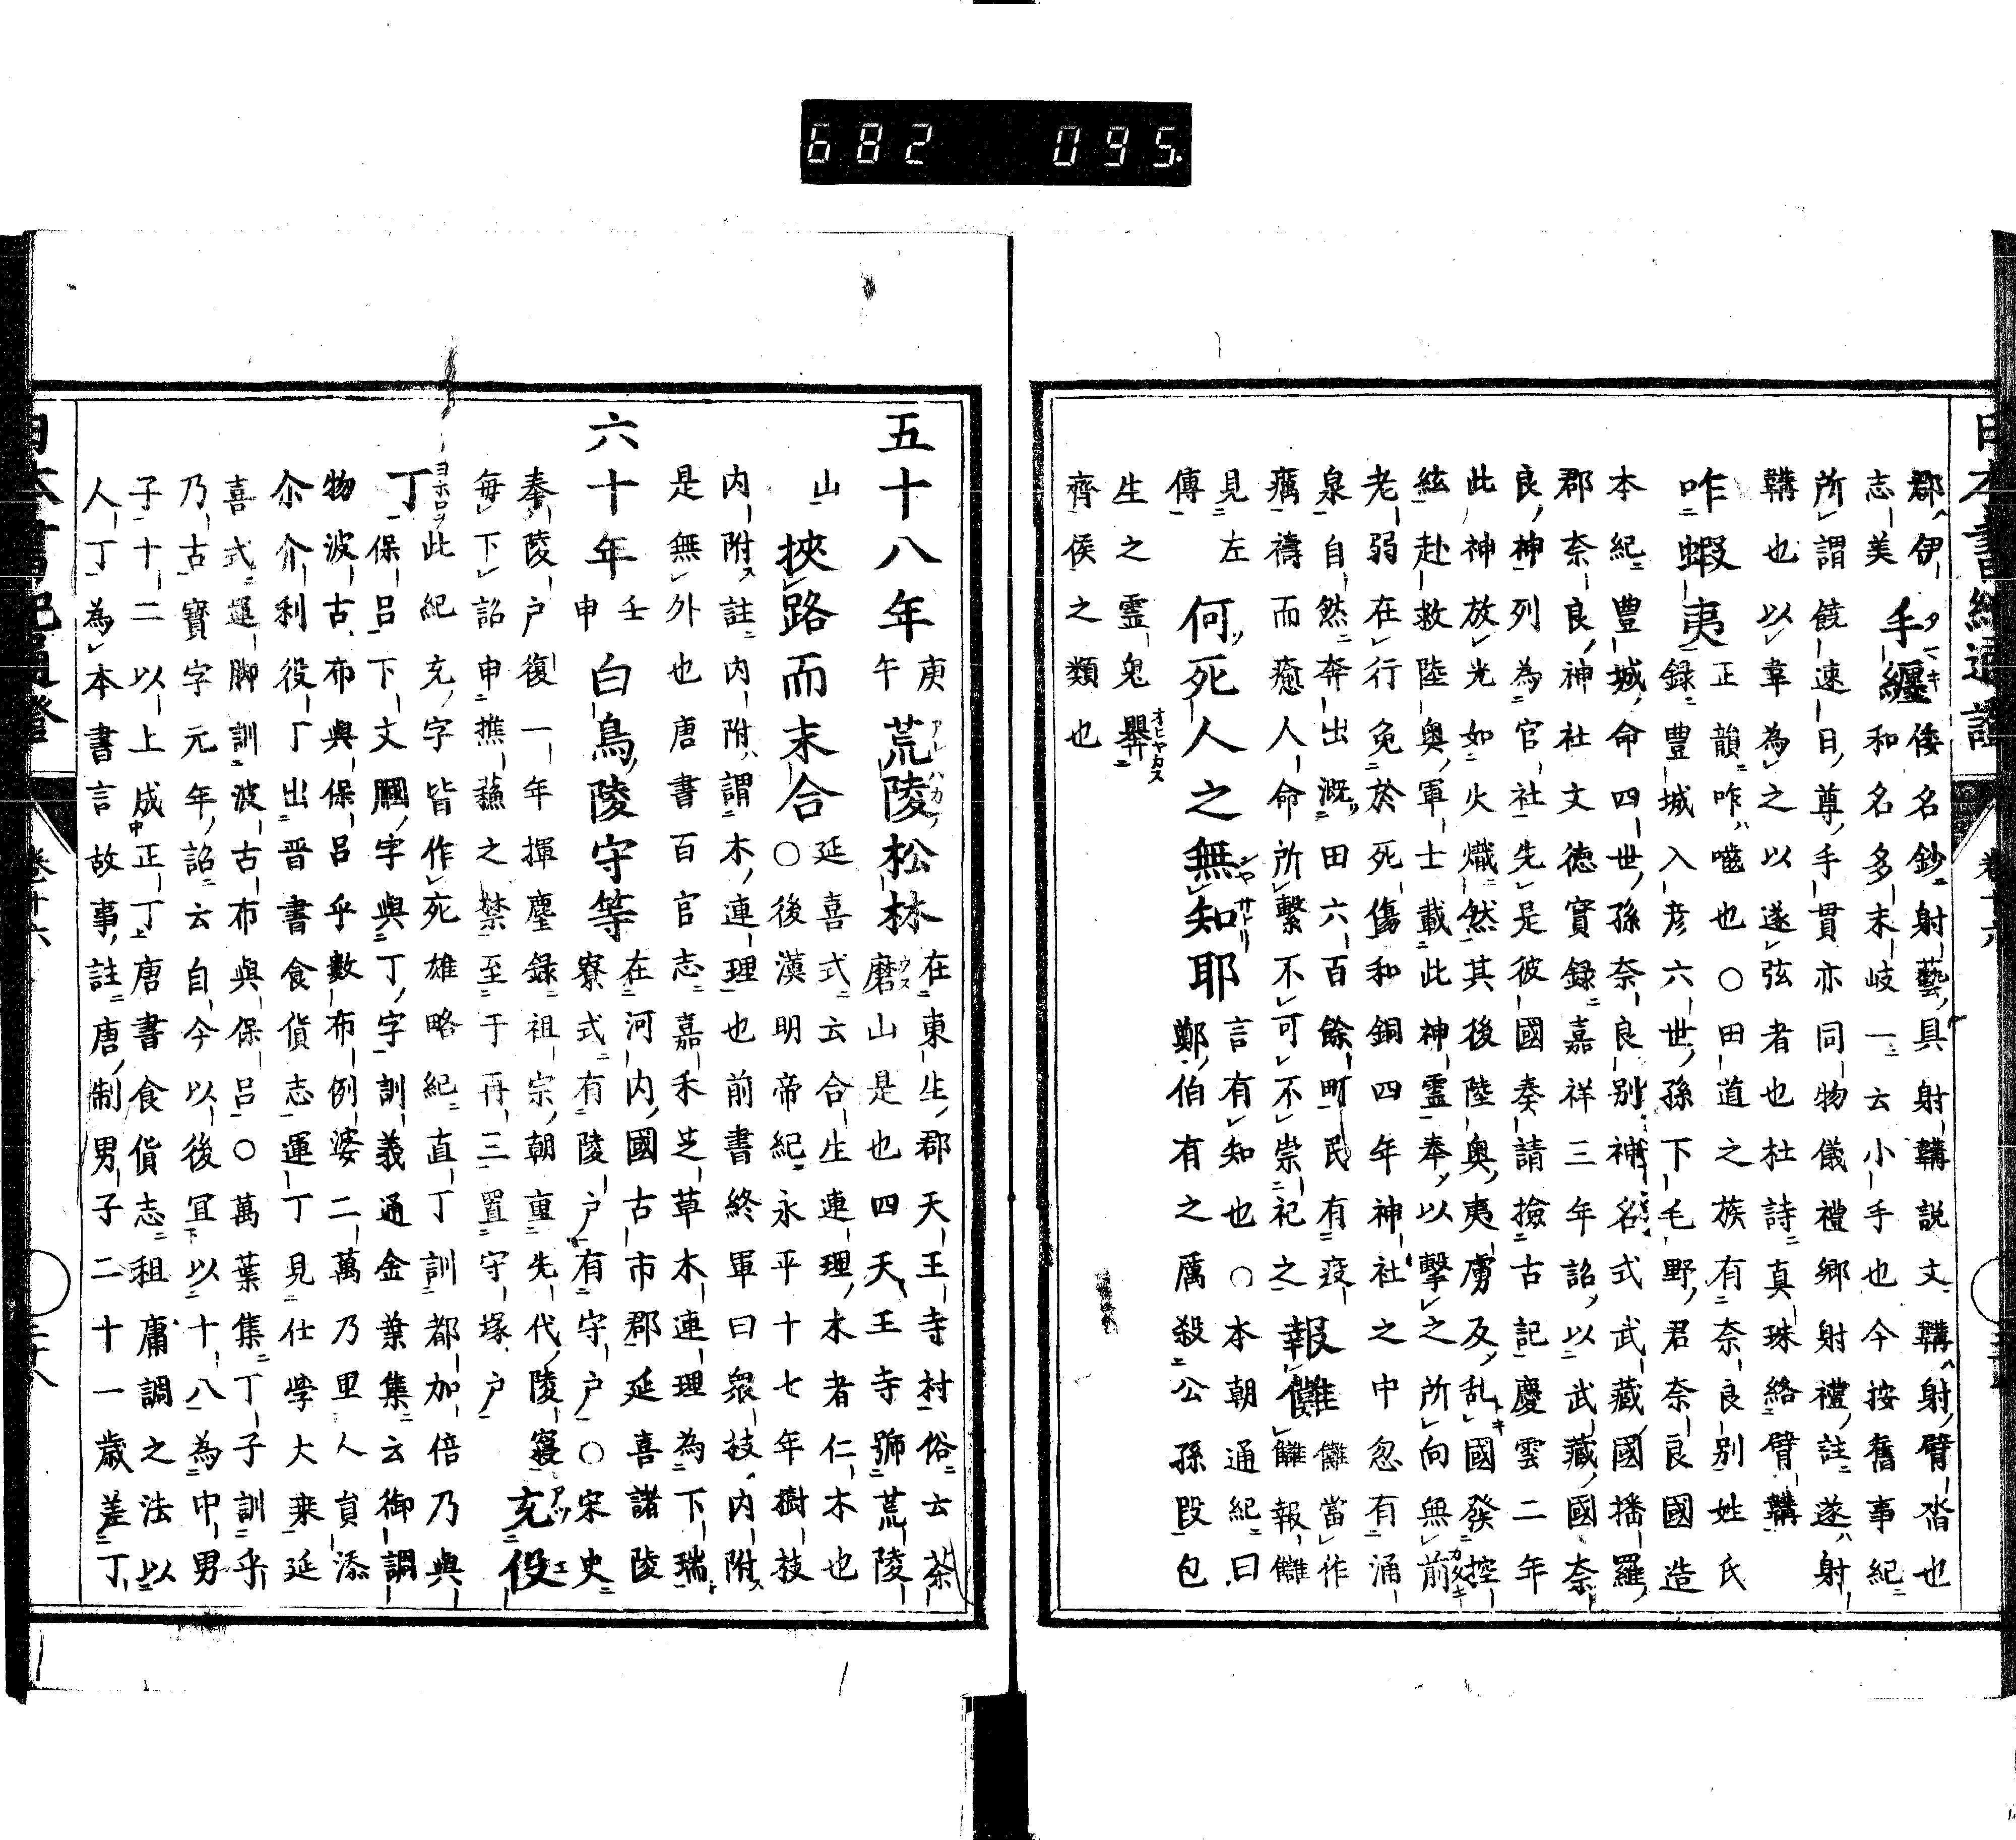 682 095.
郡伊
志美 手纏 倭名鈔射藝具射韝説文韝射臂沓也
和名多末岐一云小手也今按舊事紀
所謂饒速日尊手貫亦同物儀禮鄉射禮註遂射
韝也以韋為之以遂弦者也杜詩真珠絡臂韝
咋蝦夷 正韻咋嚙也○田道之族有奈良别姓氏
録豊城入彦六世孫下毛野君奈良國造
本紀豊城命四世孫奈良别神名式武藏國播羅
郡奈良神社文徳實録嘉祥三年詔以武藏國奈
良神列為官社先是彼國奏請撿古記慶雲二年
此神放光如火熾然其後陸奥夷虜反乱國發控
絃赴救陸奥軍士載此神靈奉以擊之所向無前
老弱在行免於死傷和銅四年神社之中忽有涌
泉自然奔出溉田六百餘町民有疫
癘禱而癒人命所繫不可不崇祀之 報讎 讎當作
讎報讎
見左
傳 何死人之無知耶 言有知也○本朝通紀曰
鄭伯有之厲殺公孫段包
生之靈鬼舉
齊侯之類也
五十八年 庚
午 荒陵松林 在東生郡天王寺村俗云茶
磨山是也四天王寺號荒陵
山 挾路而末合 延喜式云合生連理木者仁木也
○後漢明帝紀永平十七年樹枝
内附註内附謂木連理也前書終軍曰衆枝内附
是無外也唐書百官志嘉禾芝草木連理為下瑞
六十年 壬
申 白鳥陵守等 在河内國古市郡延喜諸陵
寮式有陵户有守户○宋史
奏陵户復一年揮麈録祖宗朝重先代陵寢
毎下詔申樵蘓之禁至于再三置守塚户 充役
丁 此紀充字皆作死雄略紀直丁訓都加倍乃與
保呂下文膕字與丁字訓義通金葉集云御調
物波古布與保呂乎數布例婆二萬乃里人員添
尒介利役丁出晋書食貨志運丁見仕学大乗延
喜式運脚訓波古布與保呂○萬葉集丁子訓乎
乃古寳字元年詔云自今以後宜以十八為中男
子十二以上成正丁唐書食貨志租庸調之法以
人丁為本書言故事註唐制男子二十一歳差丁